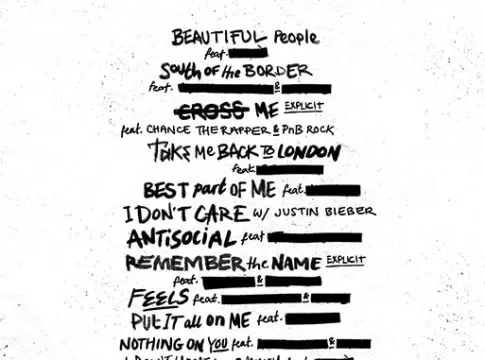 BEAUTIFUL People
feat.
South OF the BORDER
feat. &
CROSS ME EXPLICIT
feat. CHANCE THE RAPPER & PnB ROCK
TAKE Me BACK TO LONDON
feat.
BEST part OF ME feat.
I DON'T CARE W/ JUSTIN BIEBER
ANTISOCIAL feat
REMEMBER the NAME EXPLICIT
feat. &
FEELS feat. &
PUT IT all on ME feat.
NOTHING ON YOU feat. &